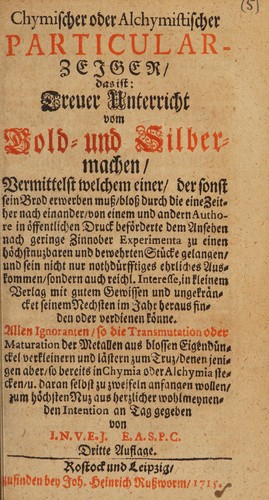 (5)
Chymischer oder Alchymistischer
PARTICULAR-
ZEIGER/
das ist:
Treuer Unterricht
vom
Gold- und Silber-
machen/
Vermittelst welchem einer/ der sonst
sein Brod erwerben muß/ bloß durch die eine Zeit-
her nach einander/ von einem und andern Autho-
re in öffentlichen Druck beförderte dem Ansehen
nach geringe Zinnober Experimenta zu einen
höchstnuzbaren und bewehrten Stücke gelangen/
und sein nicht nur nothdürfftiges ehrliches Aus-
kommen/ sondern auch reichl. Interesse, in kleinem
Verlag mit gutem Gewissen und ungekrän-
cket seinem Nechsten im Jahr heraus fin-
den oder verdienen könne.
Allen Ignoranten/ so die Transmutation oder
Maturation der Metallen aus blossen Eigendün-
ckel verkleinern und lästern zum Truz/ Denen jeni-
gen aber/ so bereits in Chymia oder Alchymia ste-
cken/ u. daran selbst zu zweifeln anfangen wollen/
zum höchsten Nuz aus herzlicher wohlmeynen-
den Intention an Tag gegeben
von
I.N.V.E.J. E.A.S.P.C.
Dritte Auflage.
Rostock und Leipzig/
zufinden bey Joh. Heinrich Rußworm/ 1715.